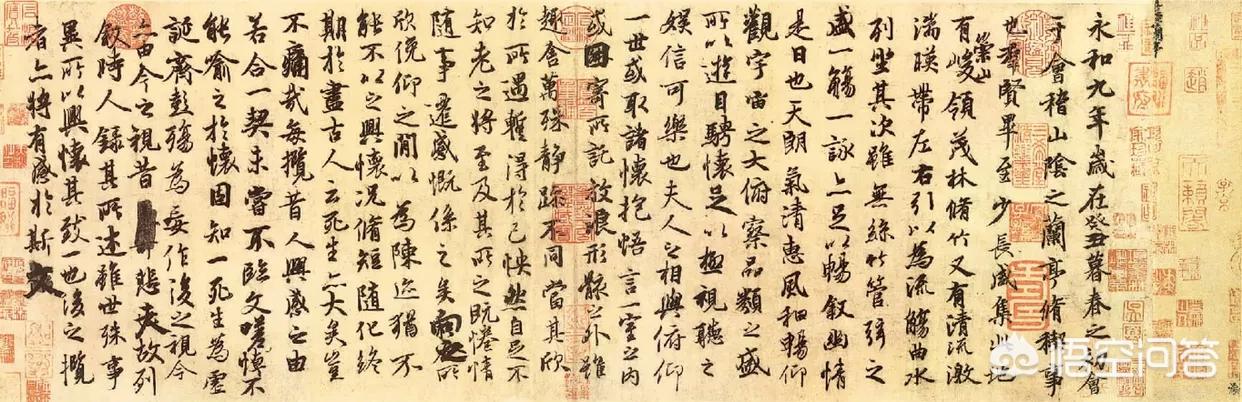 永和九年歲在癸丑暮春之初會
于會稽山陰之蘭亭脩稧事
也群賢畢至少長咸集此地
有崇山峻領茂林脩竹又有清流激
湍暎帶左右引以為流觴曲水
列坐其次雖無絲竹管弦之
盛一觴一詠亦足以暢敘幽情
是日也天朗氣清惠風和暢仰
觀宇宙之大俯察品類之盛
所以遊目騁懷足以極視聽之
娛信可樂也夫人之相與俯仰
一世或取諸懷抱悟言一室之內
或因寄所託放浪形骸之外雖
趣舍萬殊靜躁不同當其欣
於所遇暫得於己怏然自足不
知老之將至及其所之既惓情
隨事遷感慨係之矣向之所
欣俛仰之閒以為陳迹猶不
能不以之興懷況脩短隨化終
期於盡古人云死生亦大矣豈
不痛哉每攬昔人興感之由
若合一契未嘗不臨文嗟悼不
能喻之於懷固知一死生為虛
誕齊彭殤為妄作後之視今
亦由今之視昔悲夫故列
敘時人錄其所述雖世殊事
異所以興懷其致一也後之攬
者亦將有感於斯文
悟空问答